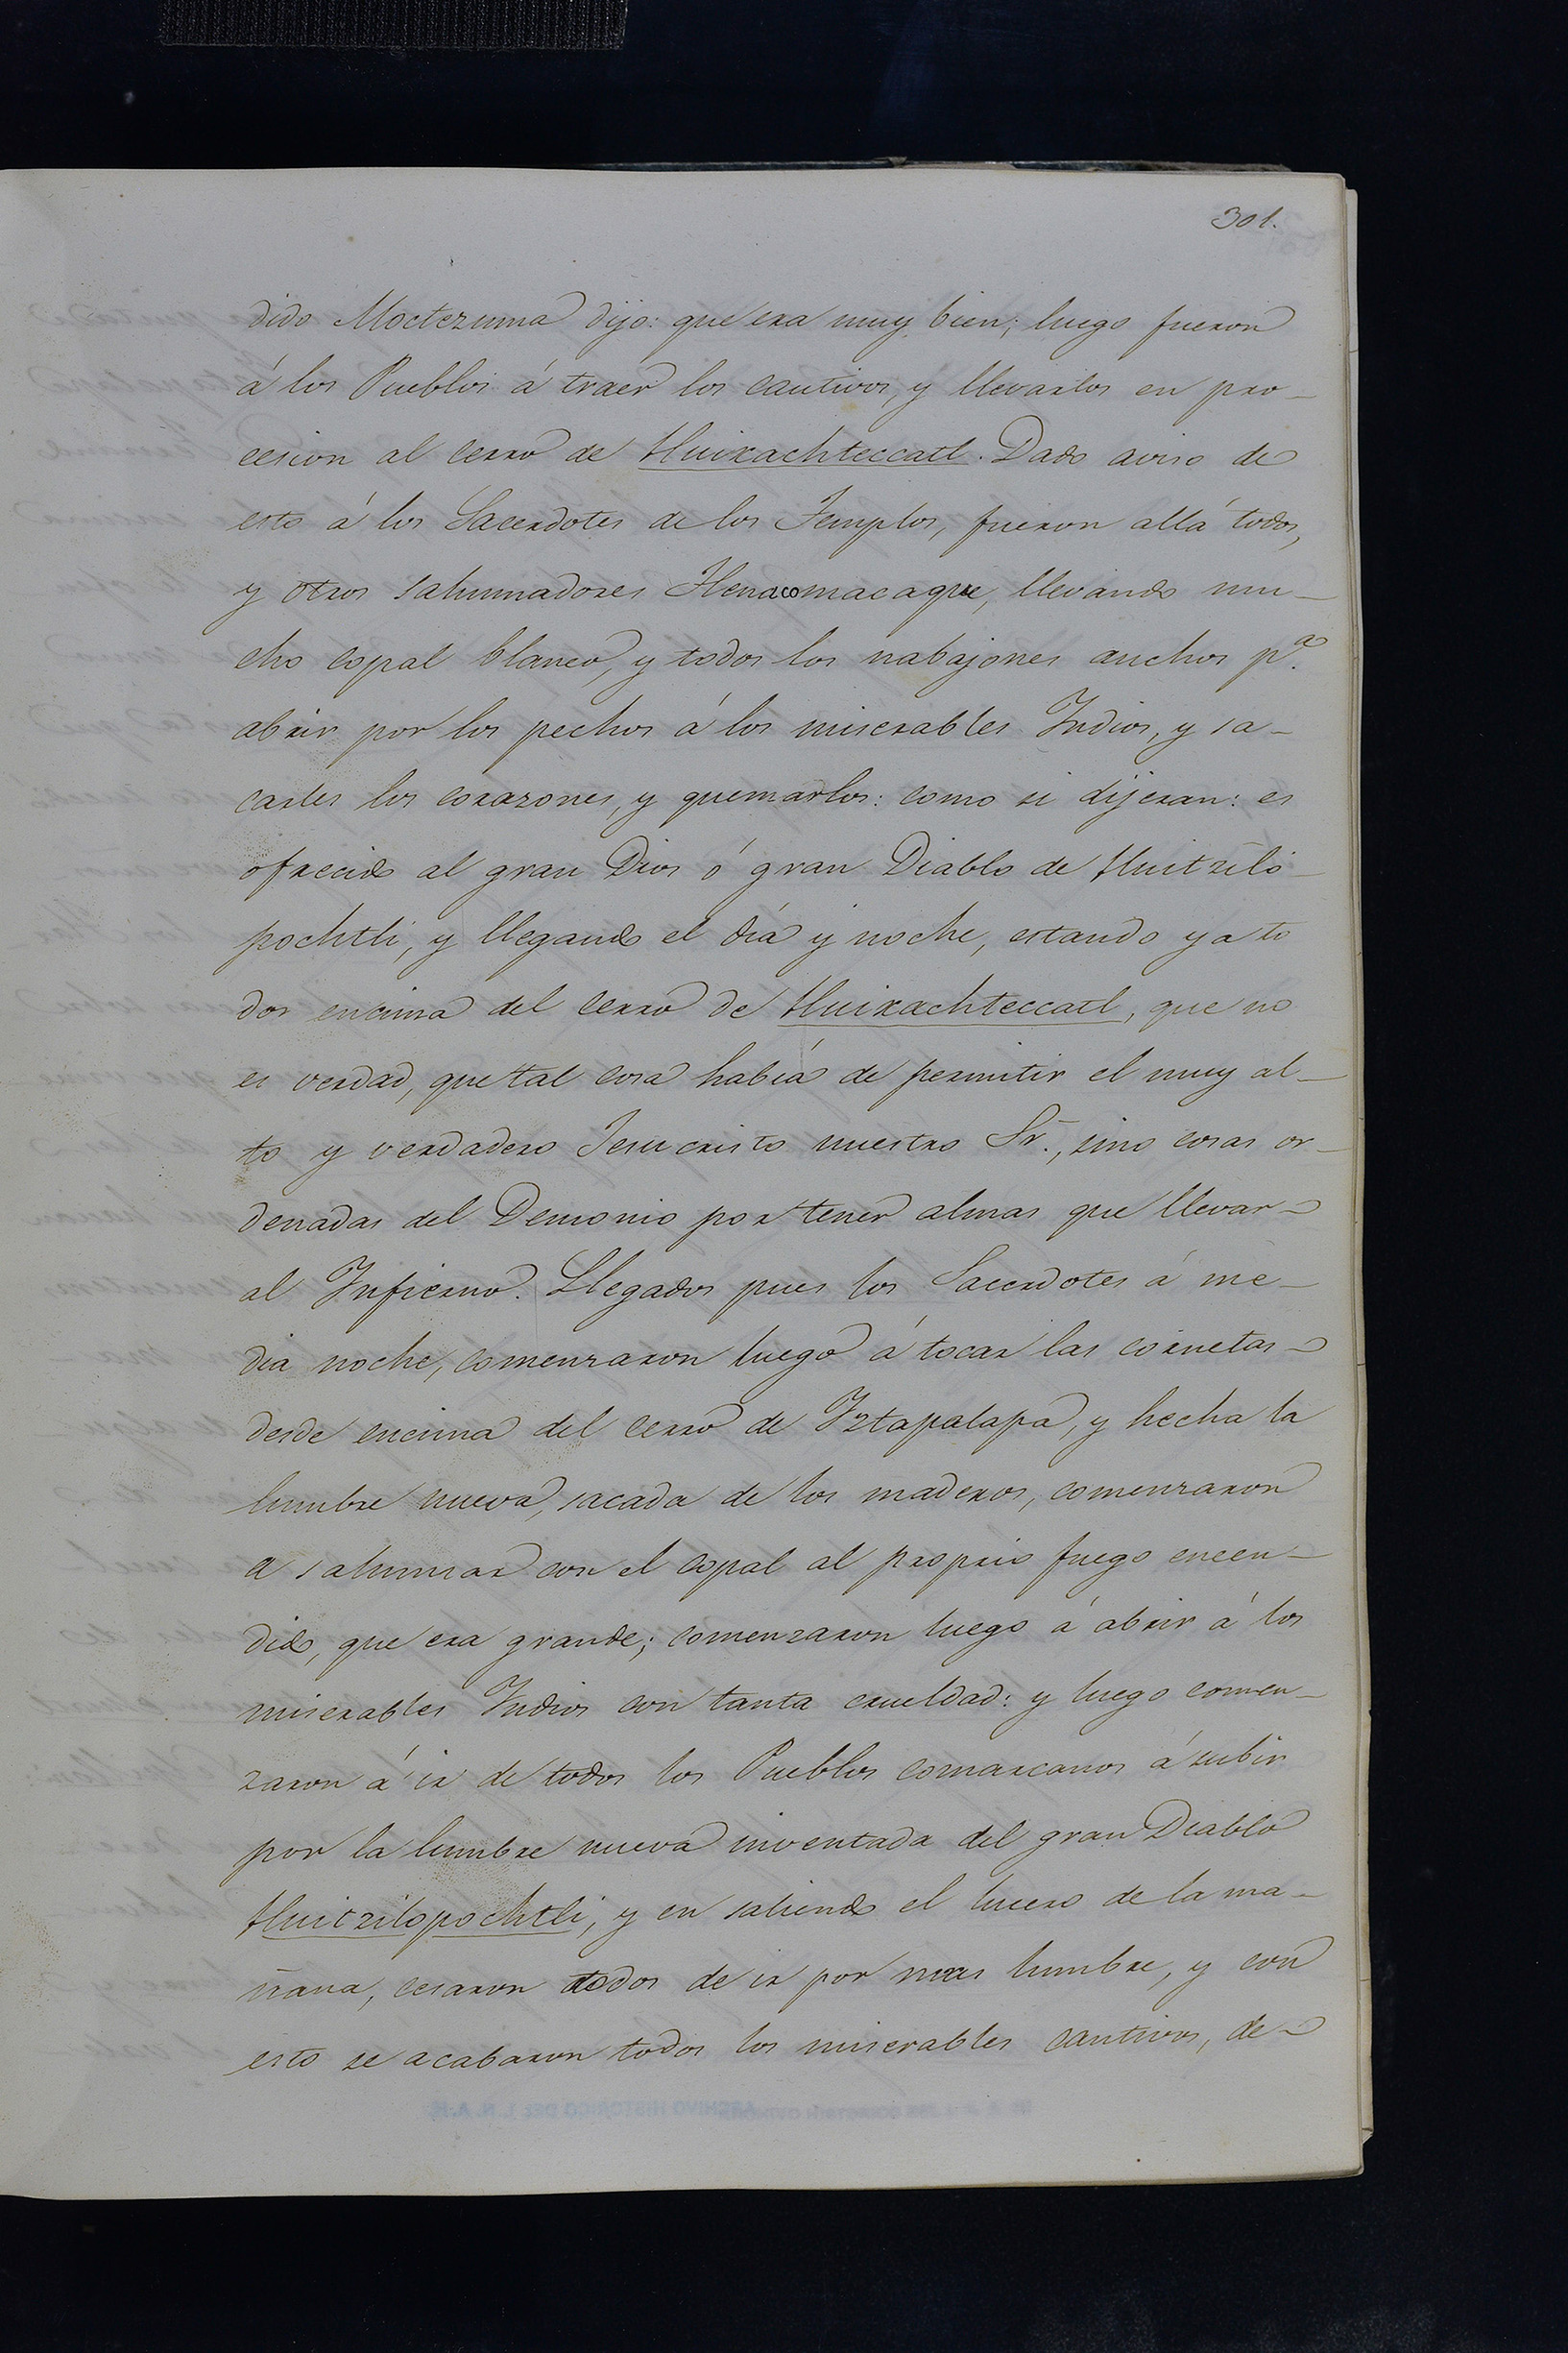 301.
dido Moctezuma dijo: que era muy bien; luego fueron
á los Pueblos á traer los cautivos, y llevarlos en pro-
cesion al cerro de Huixachteccatl. Dado aviso de
esto á los Sacerdotes de los Templos, fueron allá todos,
y otros sahumadores Tlenacomacaque, llevando mu-
cho copal blanco, y todos los nabajones anchos p.ª
abrir por los pechos á los miserables Indios, y sa-
carles los corazones, y quemarlos: como si dijeran: es
ofrecido al gran Dios ó gran Diablo de Huitzilo-
pochtli, y llegando el día y noche, estando ya to
dos encima del cerro de Huixachteccatl, que no
es verdad, que tal cosa había de permitir el muy al-
to y verdadero Jesucristo nuestro Sr., sino cosas or-
denadas del Demonio por tener almas que llevar-
al Infierno. Llegados pues los Sacerdotes á me-
dia noche, comenzaron luego á tocar las cornetas-
desde encima del cerro de Iztapalapa, y hecha la
lumbre nueva, sacada de los maderos, comenzaron
a sahumar con el copal al proprio fuego encen-
dido, que era grande; comenzaron luego á abrir á los
miserables Indios con tanta crueldad: y luego comen-
zaron á ir de todos los Pueblos comarcanos á subir
por la lumbre nueva inventada del gran Diablo
Huitzilopochtli, y en saliendo el lucero de la ma-
ñana, cesaron todos de ir por mas lumbre, y con
esto se acabaron todos los miserables cautivos, de-